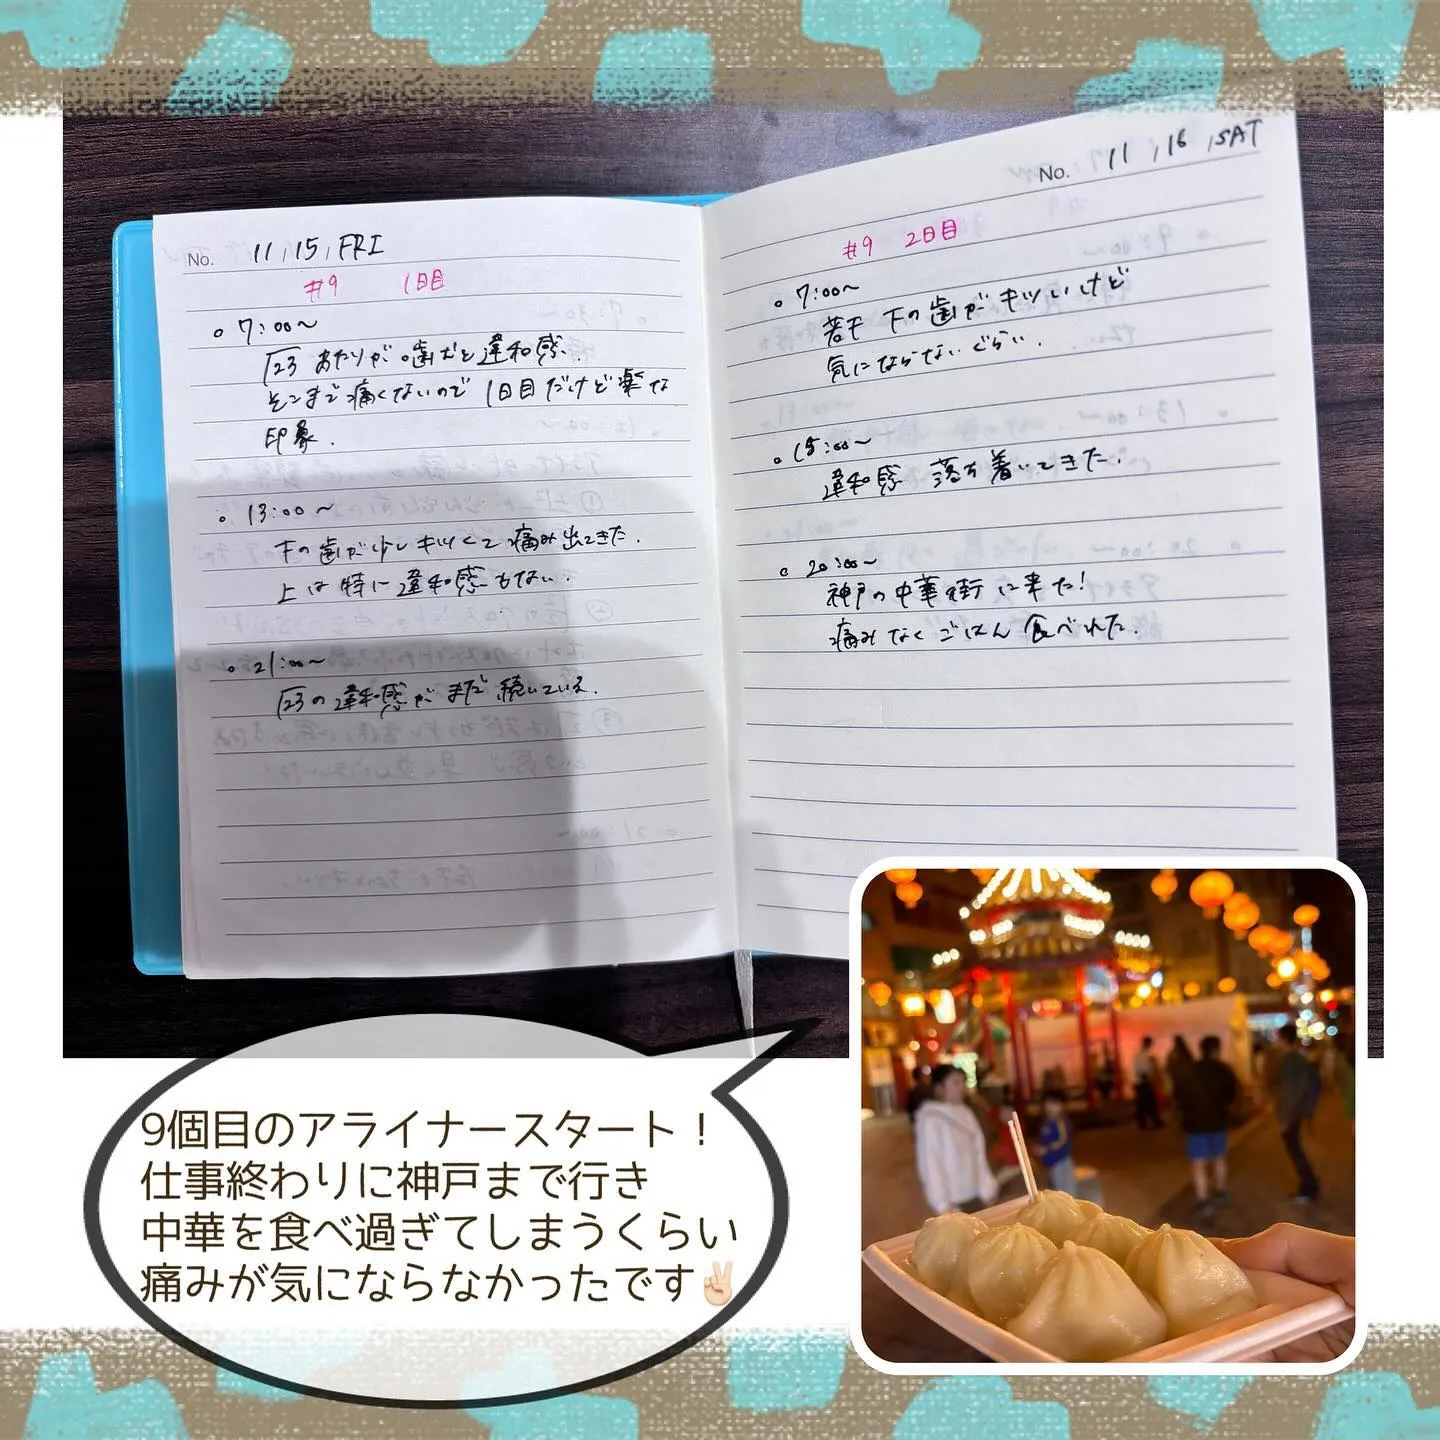 No. 11, 15, FRI
#9 1日目
○ 7:00〜
⎾23 あたりが 違和感.
そこまで痛くないので 1日目だけど楽な
印象.
○ 13:00〜
下の歯が少しキツくて痛み出てきた.
上は特に違和感もない.
○ 21:00〜
⎾23の違和感がまだ続いている.
No. 11, 16, SAT
#9 2日目
○ 7:00〜
若干 下の歯がキツいけど
気にならないぐらい.
○ 15:00〜
違和感 落ち着いてきた.
○ 20:00〜
神戸の中華街に来た!
痛みなくごはん食べれた.
9個目のアライナースタート！
仕事終わりに神戸まで行き
中華を食べ過ぎてしまうくらい
痛みが気にならなかったです✌🏻